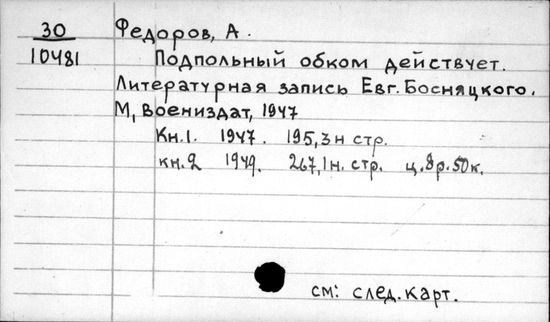 30 Федоров, А.
10481 Подпольный обком действует.
Литературная запись Евг. Босняцкого.
М, Воениздат, 1947
Кн.1. 1947. 195,3н стр.
кн.2 1949. 267,1н. стр. ц.8р.50к.
см: след.карт.